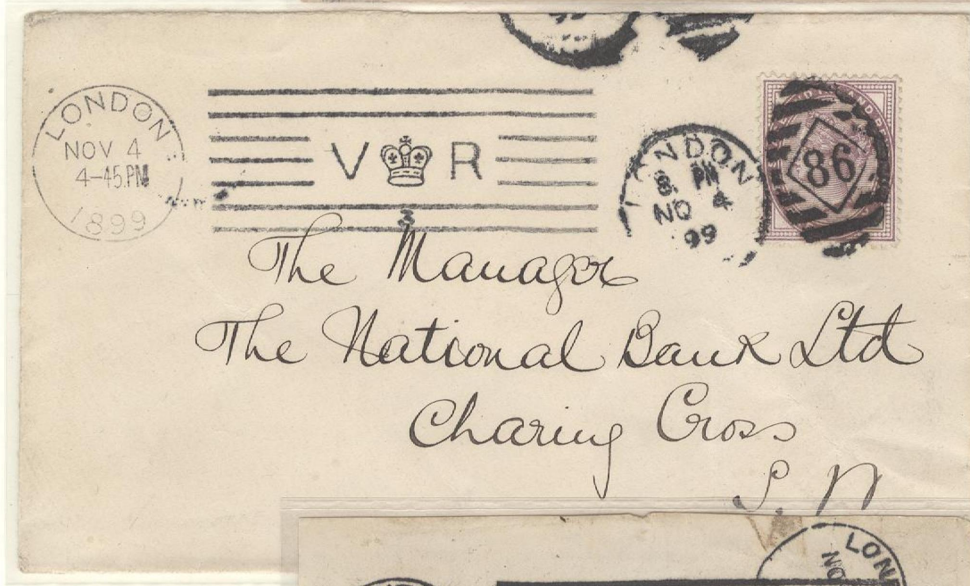 LONDON
NOV 4
4-45.PM
1899
V R
3
LONDON
8. PM
NO 4
99
86
The Manager
The National Bank Ltd
Charing Cross
S.W
LON
NO